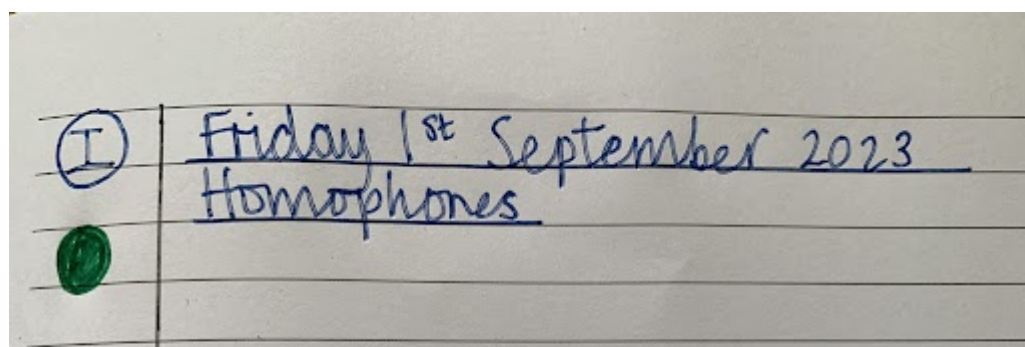 I Friday 1st September 2023
Homophones